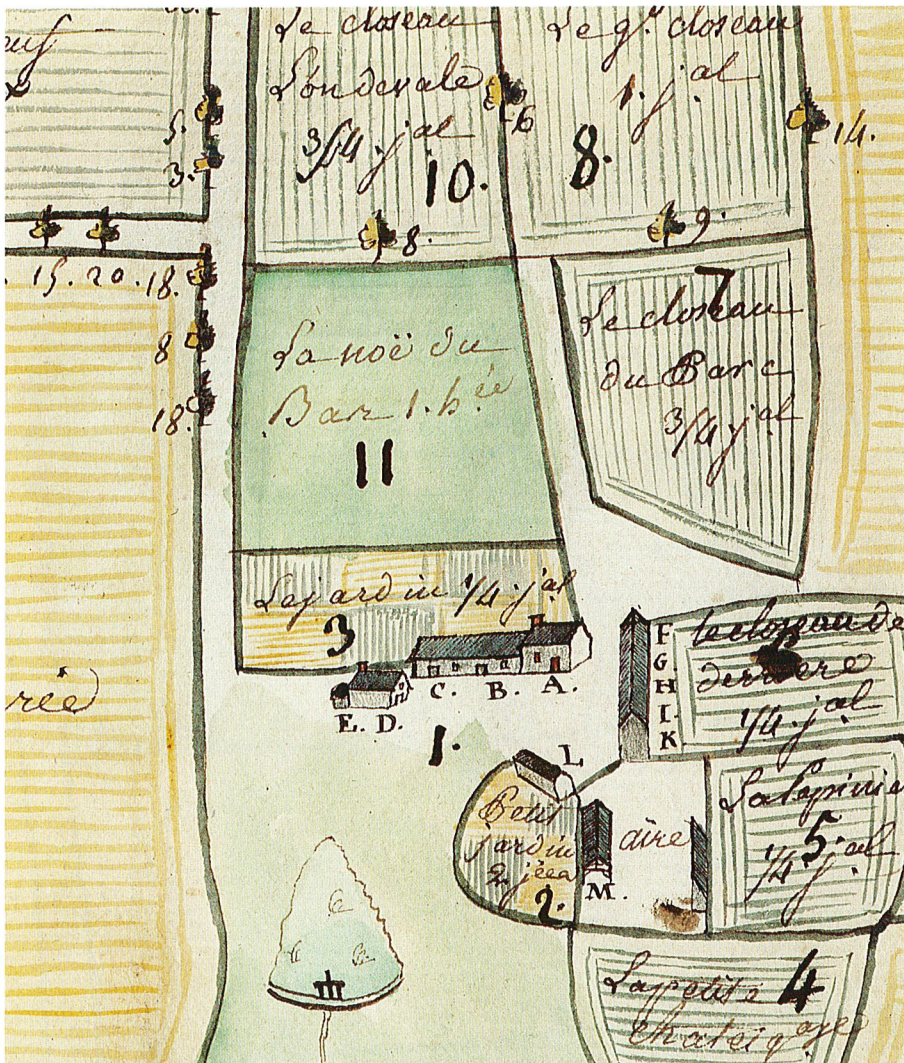 5.
3.
Le closeau
Londevale
3/4. jal
10.
6
Le gd. closeau
1. jal
8.
14.
8.
9.
15. 20. 18.
8
18.
La noë du
Bar 1. hée
11
7
Le closeau
du Parc
3/4. jal
Le jardin 1/4. jal
3
A.
B.
C.
E. D.
F
G.
H
I.
K
le closeau de
derrere
1/4. jal
rée
1.
L
Petit
jardin
2.
2.
M.
aire
La Pepinie
5.
1/4. jal
La petite
4